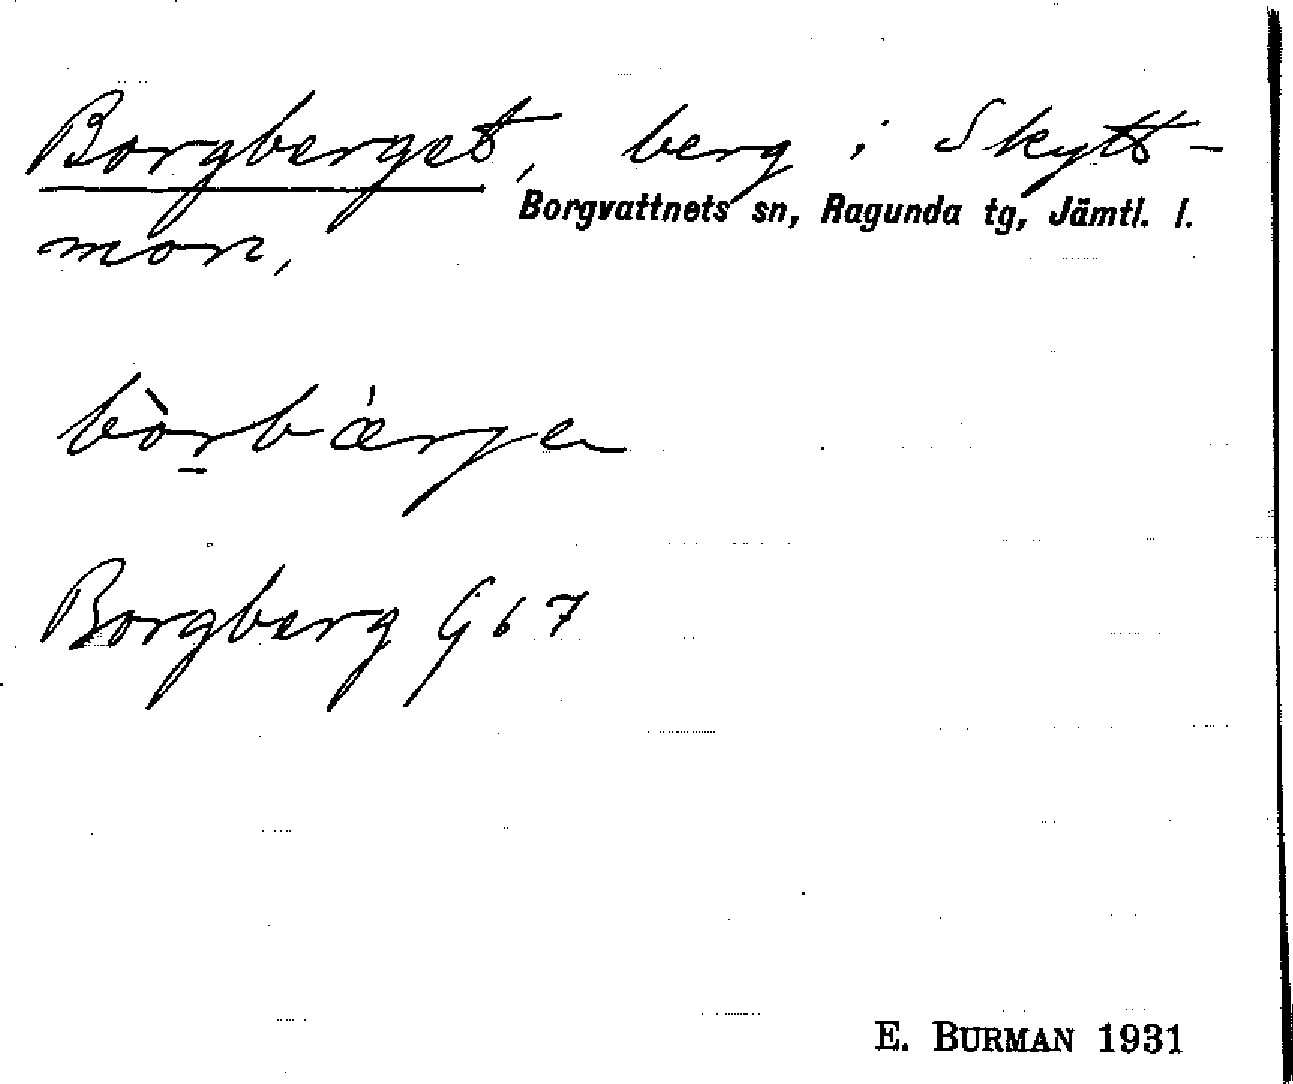 Borgberget, berg i Skytt-
Borgvattnets sn, Ragunda tg, Jämtl. l.
mon,
bòrbǽrge
Borgberg G 67
E. BURMAN 1931